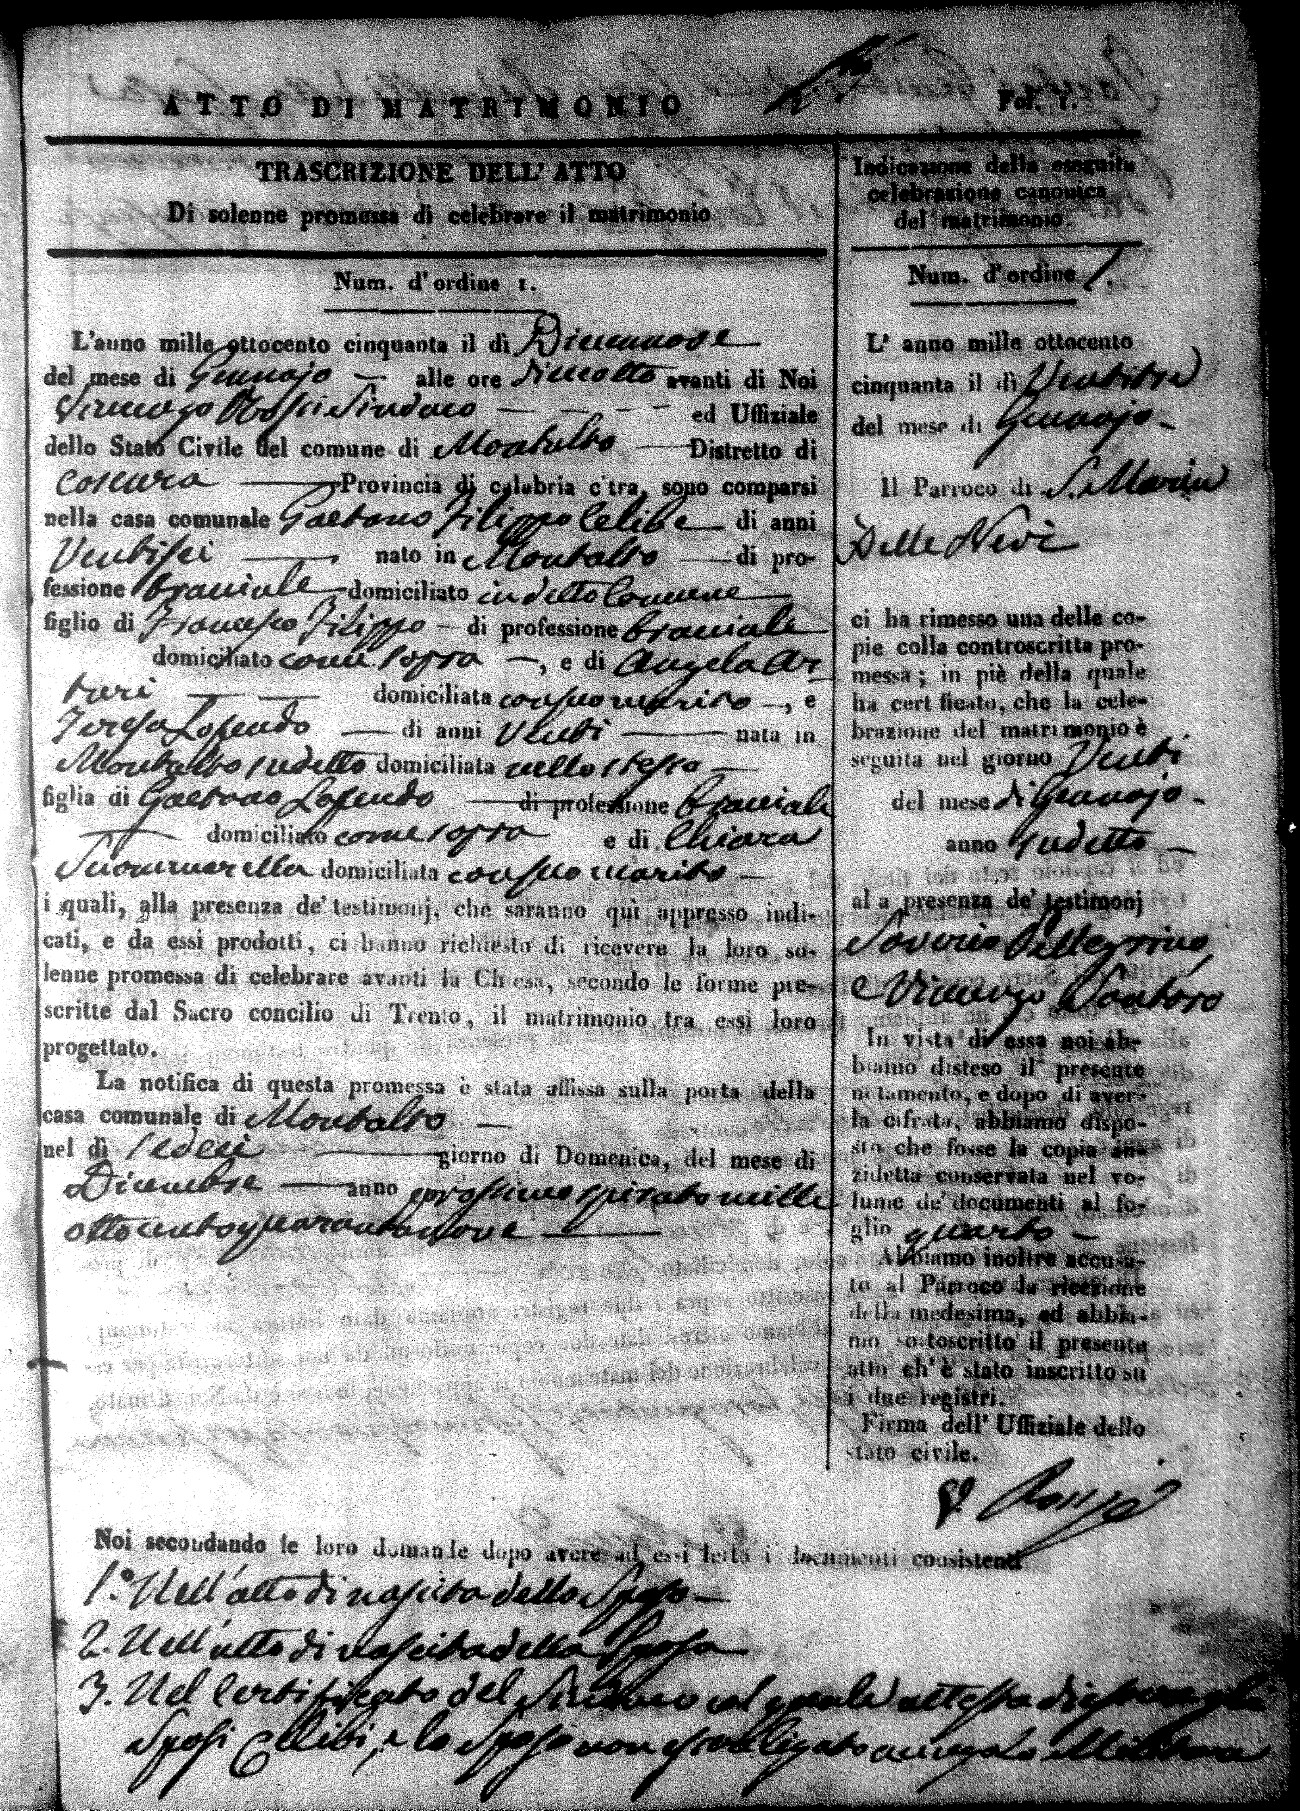 ATTO DI MATRIMONIO
Fol. 1.
TRASCRIZIONE DELL' ATTO
Di solenne promessa di celebrare il matrimonio
Num. d'ordine 1.
L'anno mille ottocento cinquanta il dì Diecinnove
del mese di Gennajo — alle ore dieciotto avanti di Noi
Rossi Sindaco — — — ed Uffiziale
dello Stato Civile del comune di Montalto — Distretto di
Cosenza — Provincia di calabria citra, sono comparsi
nella casa comunale Gaetano Filippo Celibe — di anni
Ventisei — nato in Montalto — di pro-
fessione bracciale — domiciliato in detto Comune —
figlio di Francesco Filippo — di professione bracciale
domiciliato come sopra —, e di Angela Ar
turi — — domiciliata con suo marito —, e
Teresa Losendo — di anni Venti — nata in
Montalto sudetto domiciliata nello stesso —
figlia di Gaetano Losendo — di professione bracciale
— domiciliato come sopra e di Chiara
Scommarella domiciliata con suo marito —
i quali, alla presenza de' testimonj, che saranno quì appresso indi-
cati, e da essi prodotti, ci hanno richiesto di ricevere la loro so-
lenne promessa di celebrare avanti la Chiesa, secondo le forme pre-
scritte dal Sacro concilio di Trento, il matrimonio tra essi loro
progettato.
La notifica di questa promessa è stata affissa sulla porta della
casa comunale di Montalto —
nel dì sedeci — giorno di Domenica, del mese di
Dicembre — anno prossimo spirato mille
ottocentoquarantanove —
Indicazione della eseguita
celebrazione canonica
del matrimonio.
Num. d'ordine 1.
L' anno mille ottocento
cinquanta il dì Ventitre
del mese di Gennajo.
Il Parroco di S. Maria
Delle Nevi
ci ha rimesso una delle co-
pie colla controscritta pro-
messa; in piè della quale
ha certificato, che la cele-
brazione del matrimonio è
seguita nel giorno Venti
del mese di Gennajo.
anno sudetto —
alla presenza de' testimonj
Saverio Pellegrino
e Vincenzo Santoro
In vista di essa noi ab-
biamo disteso il presente
notamento, e dopo di aver-
la cifrata, abbiamo dispo-
sto che fosse la copia anzi-
zidetta conservata nel vo-
lume de' documenti al fo-
glio quarto —
Abbiamo inoltre accusa-
to al Parroco la ricezione
della medesima, ed abbia-
mo sottoscritto il presente
atto ch' è stato inscritto su
i due registri.
Firma dell' Uffiziale dello
stato civile.
Rossi
Noi secondando le loro domande dopo avere ad essi letto i documenti consistenti
1.° Nell'atto di nascita dello Sposo —
2. Nell'atto di nascita della Sposa
3. Nel Certificato del Sindaco col quale attesta di essere gli
Sposi Celibi, e lo Sposo non